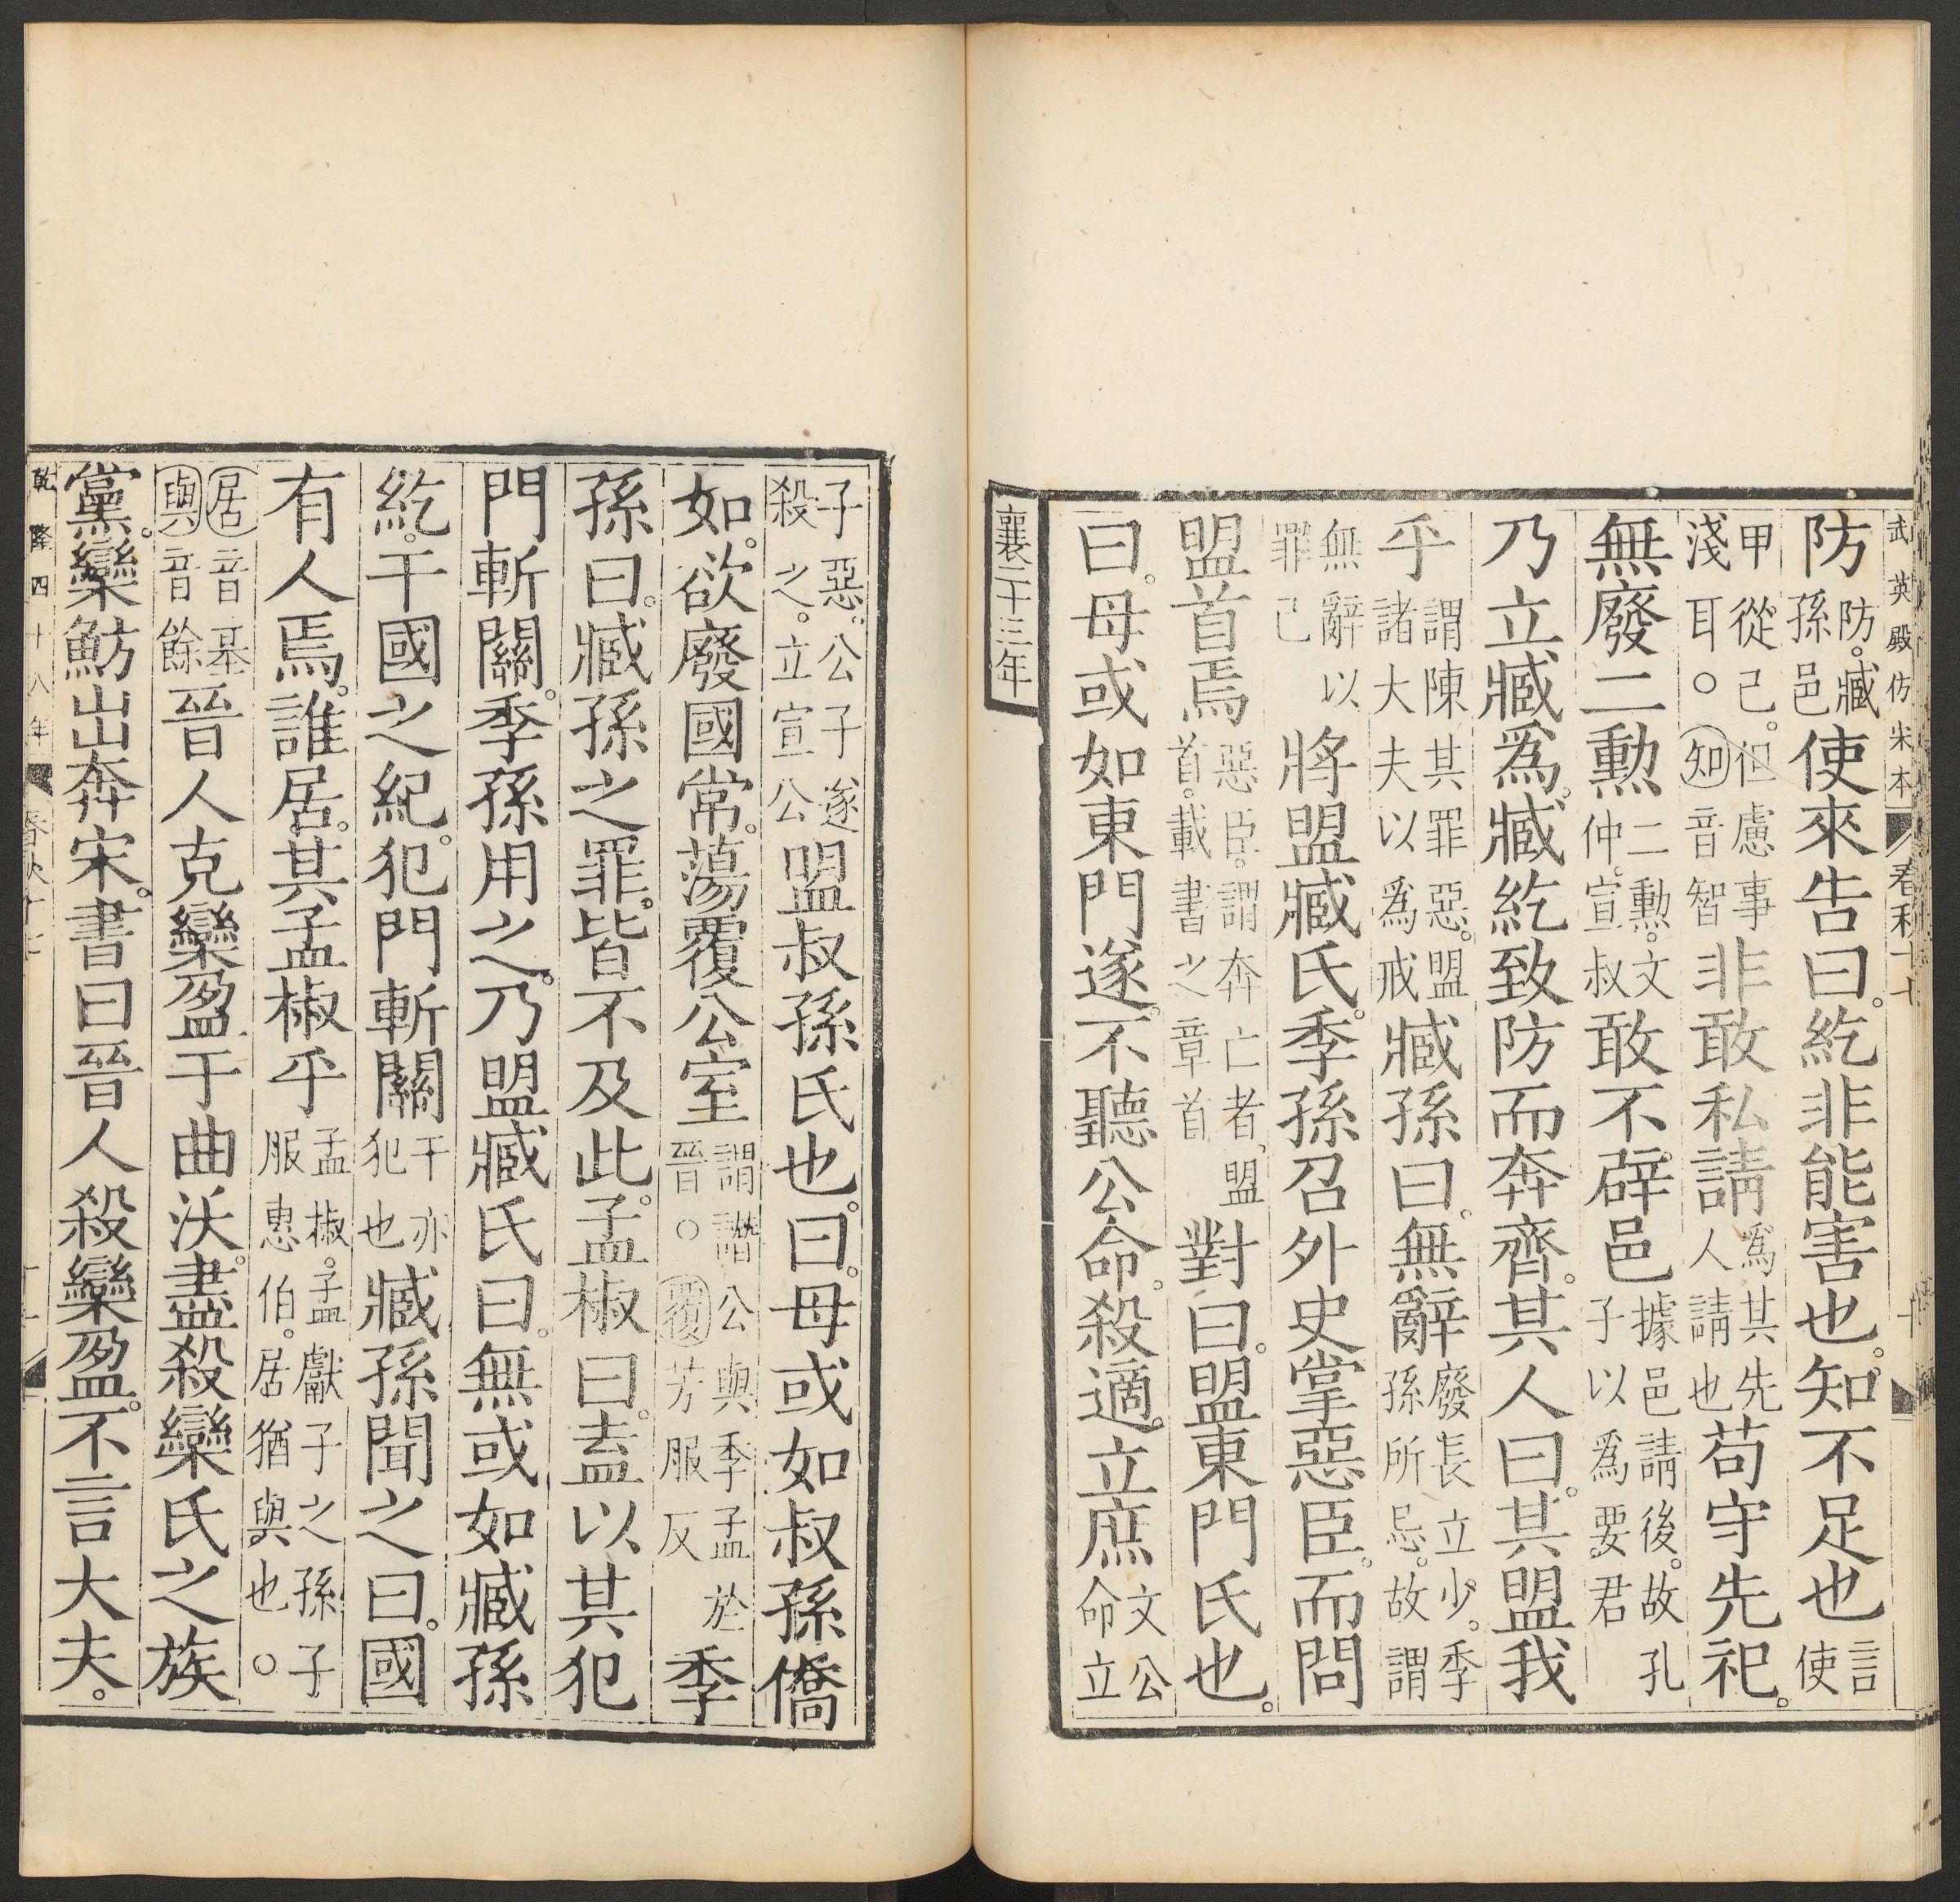 武英殿仿宋本 春秋十七 十
防防臧孫邑使來告曰紇非能害也知不足也言使
甲從己但慮事淺耳○知音智非敢私請爲其先人請也苟守先祀
無廢二勳二勳文仲宣叔敢不辟邑據邑請後故孔子以爲要君
乃立臧爲臧紇致防而奔齊其人曰其盟我
乎謂陳其罪惡盟諸大夫以爲戒臧孫曰無辭廢長立少季孫所忌故謂
無辭以罪己將盟臧氏季孫召外史掌惡臣而問
盟首焉惡臣謂奔亡者盟首載書之章首對曰盟東門氏也
曰毋或如東門遂不聽公命殺適立庶文公命立
襄二十三年
子惡公子遂殺之立宣公盟叔孫氏也曰毋或如叔孫僑
如欲廢國常蕩覆公室謂譖公與季孟於晉○覆芳服反季
孫曰臧孫之罪皆不及此孟椒曰盍以其犯
門斬關季孫用之乃盟臧氏曰無或如臧孫
紇干國之紀犯門斬關干亦犯也臧孫聞之曰國
有人焉誰居其孟椒乎孟椒孟獻子之孫子服惠伯居猶與也○
居音基與音餘晉人克欒盈于曲沃盡殺欒氏之族
黨欒魴出奔宋書曰晉人殺欒盈不言大夫
乾隆四十八年 春秋十七 十一